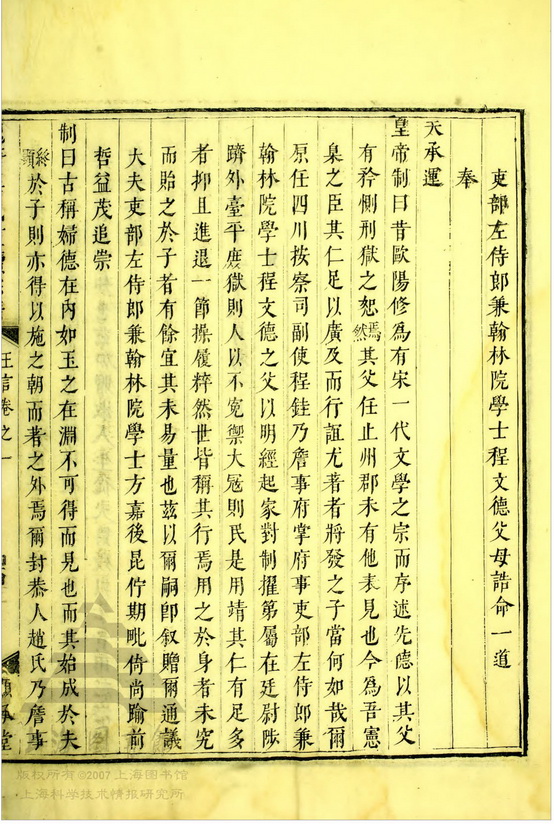 吏部左侍郎兼翰林院學士程文德父母誥命一道
奉
天承運
皇帝制曰昔歐陽修為有宋一代文學之宗而序述先德以其父
有矜惻刑獄之恕焉然其父任止州郡未有他表見也今為吾憲
臬之臣其仁足以廣及而行誼尤著者將發之子當何如哉爾
原任四川按察司副使程銈乃詹事府掌府事吏部左侍郎兼
翰林院學士程文德之父以明經起家對制擢第屬在廷尉陟
躋外臺平庶獄則人以不冤禦大冦則民是用靖其仁有足多
者抑且進退一節操履粹然世皆稱其行焉用之於身者未究
而貽之於子者有餘宜其未易量也茲以爾嗣卽叙贈爾通議
大夫吏部左侍郎兼翰林院學士方嘉後昆佇期毗倚尚踰前
哲益茂追崇
制曰古稱婦德在內如玉之在淵不可得而見也而其始成於夫
終顯於子則亦得以施之朝而著之外焉爾封恭人趙氏乃詹事
王言卷之一
版权所有©2007上海图书馆
上海科学技术情报研究所